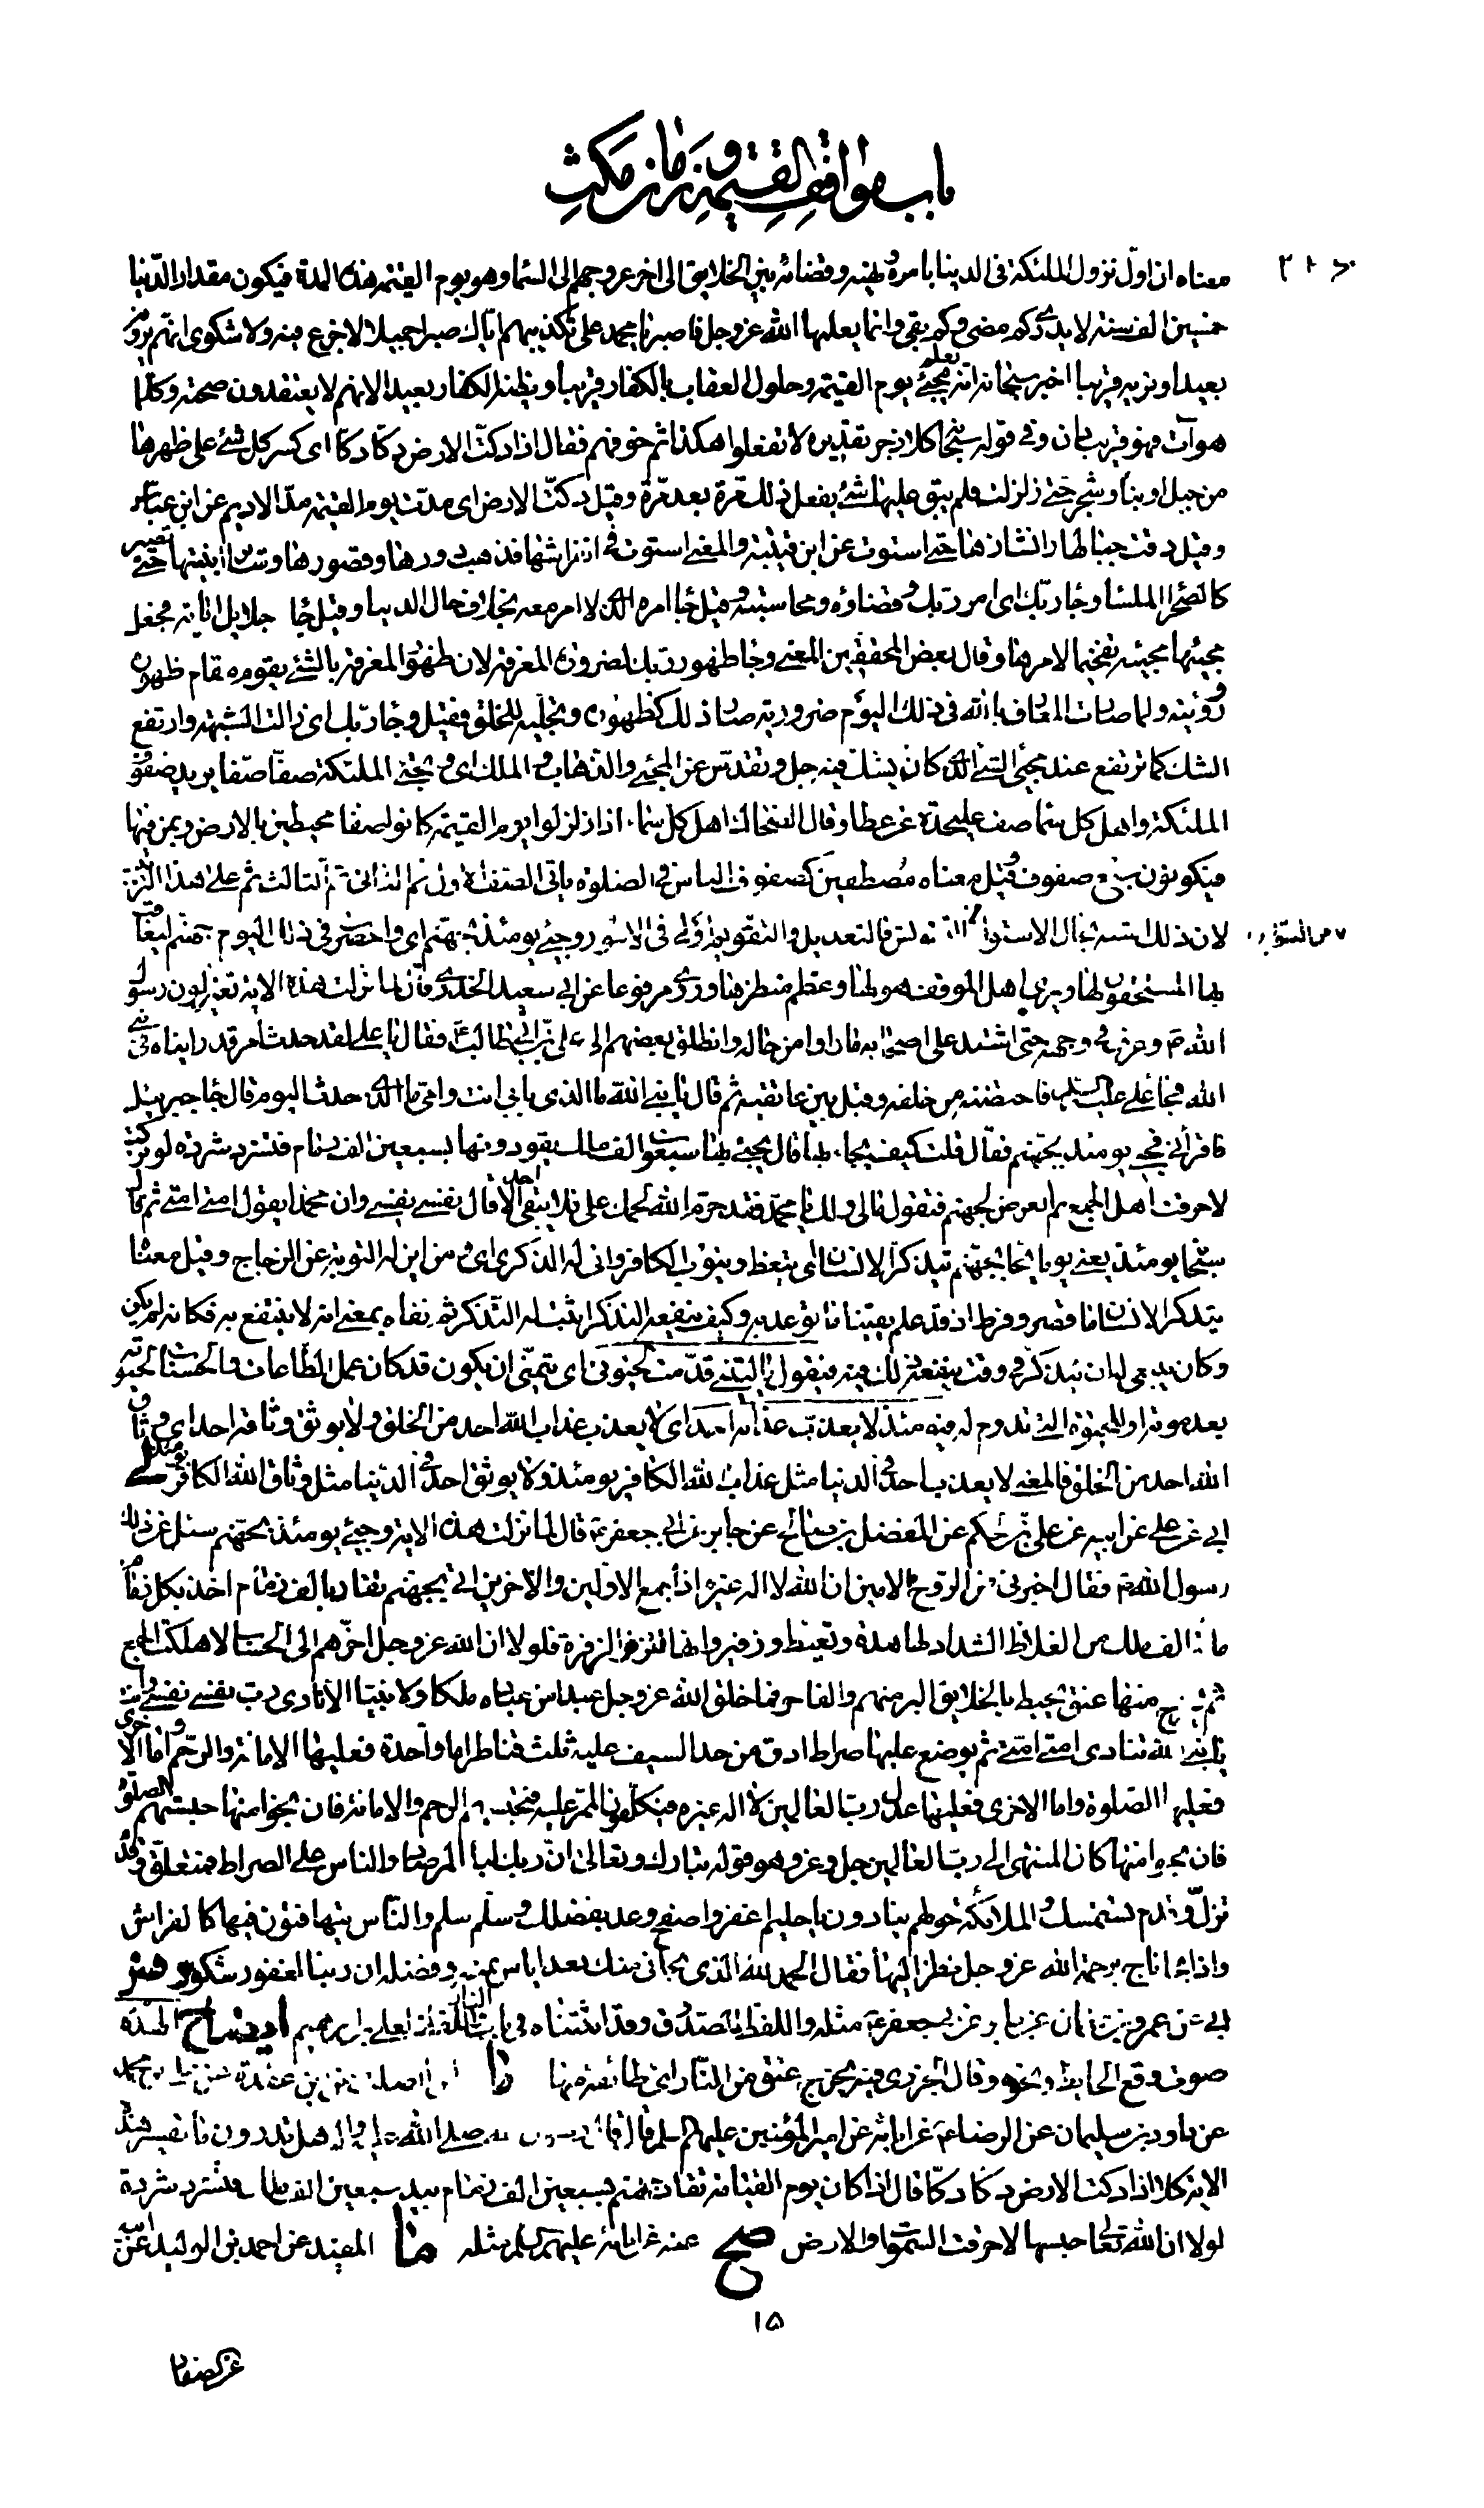 باب مواقف القيمة و زمان مكث
معناه ان اوّل نزول الملئكة فى الدنيا بامره ونهيه وقضائه بين الخلايق الى اخر عروجهم الى السما وهو يوم القيمة هذه المدة فيكون مقدار الدّنيا
خمسين الف سنة لا يدرى كم مضى وكم بقى وانما يعلمها الله عز وجل فاصبر يا محمد على تكذيبهم اياك صبرا جميلا لا جزع فيه ولا شكوى انهم يرونه
بعيدا ونريه قريبا اخبر سبحانه انه يعلم مجيئ يوم القيمة وحلول العقاب بالكفار قريبا ويظنه الكفار بعيدا لانهم لا يعتقدون صحته وكلما
هو آت فهو قريب دان وفى قوله سبحانه كلا زجر تقديره لا تفعلوا هكذا ثم خوفهم فقال اذا دكت الارض دكا دكا اى كسر كل شئ على ظهرها
من جبل او بناء وشجر حتى زلزلت فلم يبق عليها شئ يفعل ذلك مرة بعد مرة وقيل دكت الارض اى مدت يوم القيمة مد الاديم عن ابن عباس
وقيل دقت جبالها وانشازها حتى استوت عن ابن قتيبة والمعنى استوت فى انفراشها فذهب دورها وقصورها وسائر ابنيتها حتى تصير
كالصحراء الملساء وجاء ربك اى امر ربك وقضاؤه ومحاسبته وقيل جاء امره الذى لا امر معه بخلاف حال الدنيا وقيل جاء جلايل اياته فجعل
مجيئها مجيئه تفخيما لامرها وقال بعض المحققين المعنى وجاء ظهور ربك لضرورة المعرفة لان ظهور المعرفة بالشئ يقوم مقام ظهوره
ورؤيته ولما صارت المعارف بالله فى ذلك اليوم ضرورية صار ذلك كظهوره وتجليه للخلق فقيل وجاء ربك اى زالت الشبهة وارتفع
الشك كما ترتفع عند مجئ الشئ الذى كان يشك فيه جل وتقدس عن المجئ والذهاب والملك اى وتجئ الملئكة صفا صفا يريد صفوف
الملئكة واهل كل سماء صف على حدة عن عطا وقال الضحاك اهل كل سماء اذا زلزلوا يوم القيمة كانوا صفا محيطين بالارض وبمن فيها
فيكونون سبع صفوف وقيل معناه مصطفين كصفوف الناس فى الصلوة ياتى الصف الاول ثم الثانى ثم الثالث ثم على هذا الترتيب
لان ذلك اشبه بحال الاستواء
بها المستحقون لها ويرى اهل الموقف هولها وعظم منظرها وروى مرفوعا عن ابى سعيد الخدرى قال لما نزلت هذه الاية تغير لون رسول
الله ص وعرف فى وجهه حتى اشتد على اصحابه ما راوا من حاله وانطلق بعضهم الى على بن ابى طالب ع فقال يا على لقد حدث امر قد رايناه فى نبى
الله فجاء على عليه السلام فاحتضنه من خلفه وقبل بين عاتقيه ثم قال يا نبى الله بابى انت وامى ما الذى حدث اليوم قال جاء جبرئيل
فاقرأنى وجئ يومئذ بجهنم فقال قلت كيف يجاء بها قال يجئ بها سبعون الف ملك يقودونها بسبعين الف زمام فتشرد شردة لو تركت
لاحرقت اهل الجمع ثم اتعرض لجهنم فتقول مالى ولك يا محمد فقد حرم الله لحمك على فلا يبقى احد الا قال نفسى نفسى وان محمدا يقول امتى امتى ثم قال
سبحانه يومئذ يعنى يوم يجاء بجهنم يتذكر الانسان اى يتعظ ويتوب الكافر وانى له الذكرى اى من اين له التوبة عن الزجاج وقيل معناه
يتذكر الانسان ما قصر وفرط اذ قد علم يقينا ما توعد به وكيف ينفعه التذكر اثبت له التذكر ثم نفاه بمعنى انه لا ينتفع به فكانه لم يكن
وكان ينبغى له ان يتذكر فى وقت ينفعه ذلك فيه فيقول يا ليتنى قدمت لحيوتى اى يتمنى ان يكون قد كان عمل الطاعات والحسنات لحيوته
بعد موته او للحيوة التى تدوم له فيومئذ لا يعذب عذابه احد اى لا يعذب عذاب الله احد من الخلق ولا يوثق وثاقه احد اى وثاق
الله احد من الخلق فالمعنى لا يعذب احد فى الدنيا مثل عذاب الله الكافر يومئذ ولا يوثق احد فى الدنيا مثل وثاق الله الكافر يومئذ
ابى عن على عن ابيه عن على بن الحكم عن المفضل بن صالح عن جابر عن ابى جعفر ع قال لما نزلت هذه الاية وجئ يومئذ بجهنم سئل عن ذلك
رسول الله ص فقال اخبرنى الروح الامين ان الله لا اله غيره اذا جمع الاولين والاخرين اتى بجهنم تقاد بالف زمام اخذ بكل زمام
مائة الف ملك من الغلاظ الشداد لها هدة وتغيظ وزفير وانها لتزفر الزفرة فلولا ان الله عز وجل اخرهم الى الحساب لاهلكت الجمع
ثم يخرج منها عنق يحيط بالخلايق البر منهم والفاجر فما خلق الله عز وجل عبدا من عباده ملكا ولا نبيا الا نادى رب نفسى نفسى وانت
يا نبى الله تنادى امتى امتى ثم يوضع عليها صراط ادق من حد السيف عليه ثلث قناطر اما واحدة فعليها الامانة والرحم واما الاخرى
فعليها الصلوة واما الاخرى فعليها عدل رب العالمين لا اله غيره فيكلفون الممر عليه فتحبسهم الرحم والامانة فان نجوا منها حبستهم الصلوة
فان نجوا منها كان المنتهى الى رب العالمين جل وعز وهو قوله تبارك وتعالى ان ربك لبالمرصاد والناس على الصراط فمتعلق وقدم
تزل وقدم تستمسك والملائكة حولهم ينادون يا حليم اغفر واصفح وعد بفضلك وسلم سلم والناس يتهافتون فيها كالفراش
واذا نجا ناج برحمة الله عز وجل نظر اليها فقال الحمد لله الذى نجانى منك بعد اياس بمنه وفضله ان ربنا لغفور شكور فس
ابى عن عمرو بن عثمان عن جابر عن ابى جعفر ع مثله واللفظ للصدوق وقد اثبتناه فى باب النار ايضاح الهدة
صوت وقع الحايط ونحوه وقال الجزرى فيه يخرج عنق من النار اى طائفة منها ما
عن داود بن سليمان عن الرضا ع عن ابائه عن امير المؤمنين عليهم السلم قال قال رسول الله صلى الله عليه واله هل تدرون ما تفسير هذه
الاية كلا اذا دكت الارض دكا دكا قال اذا كان يوم القيامة تقاد جهنم بسبعين الف زمام بيد سبعين الف ملك فتشرد شردة
لولا ان الله تعالى حبسها لاحرقت السموات والارض صح عنه عن ابائه عليهم السلم مثله ما المفيد عن احمد بن الوليد عن ابيه
١٥
عن الصفار